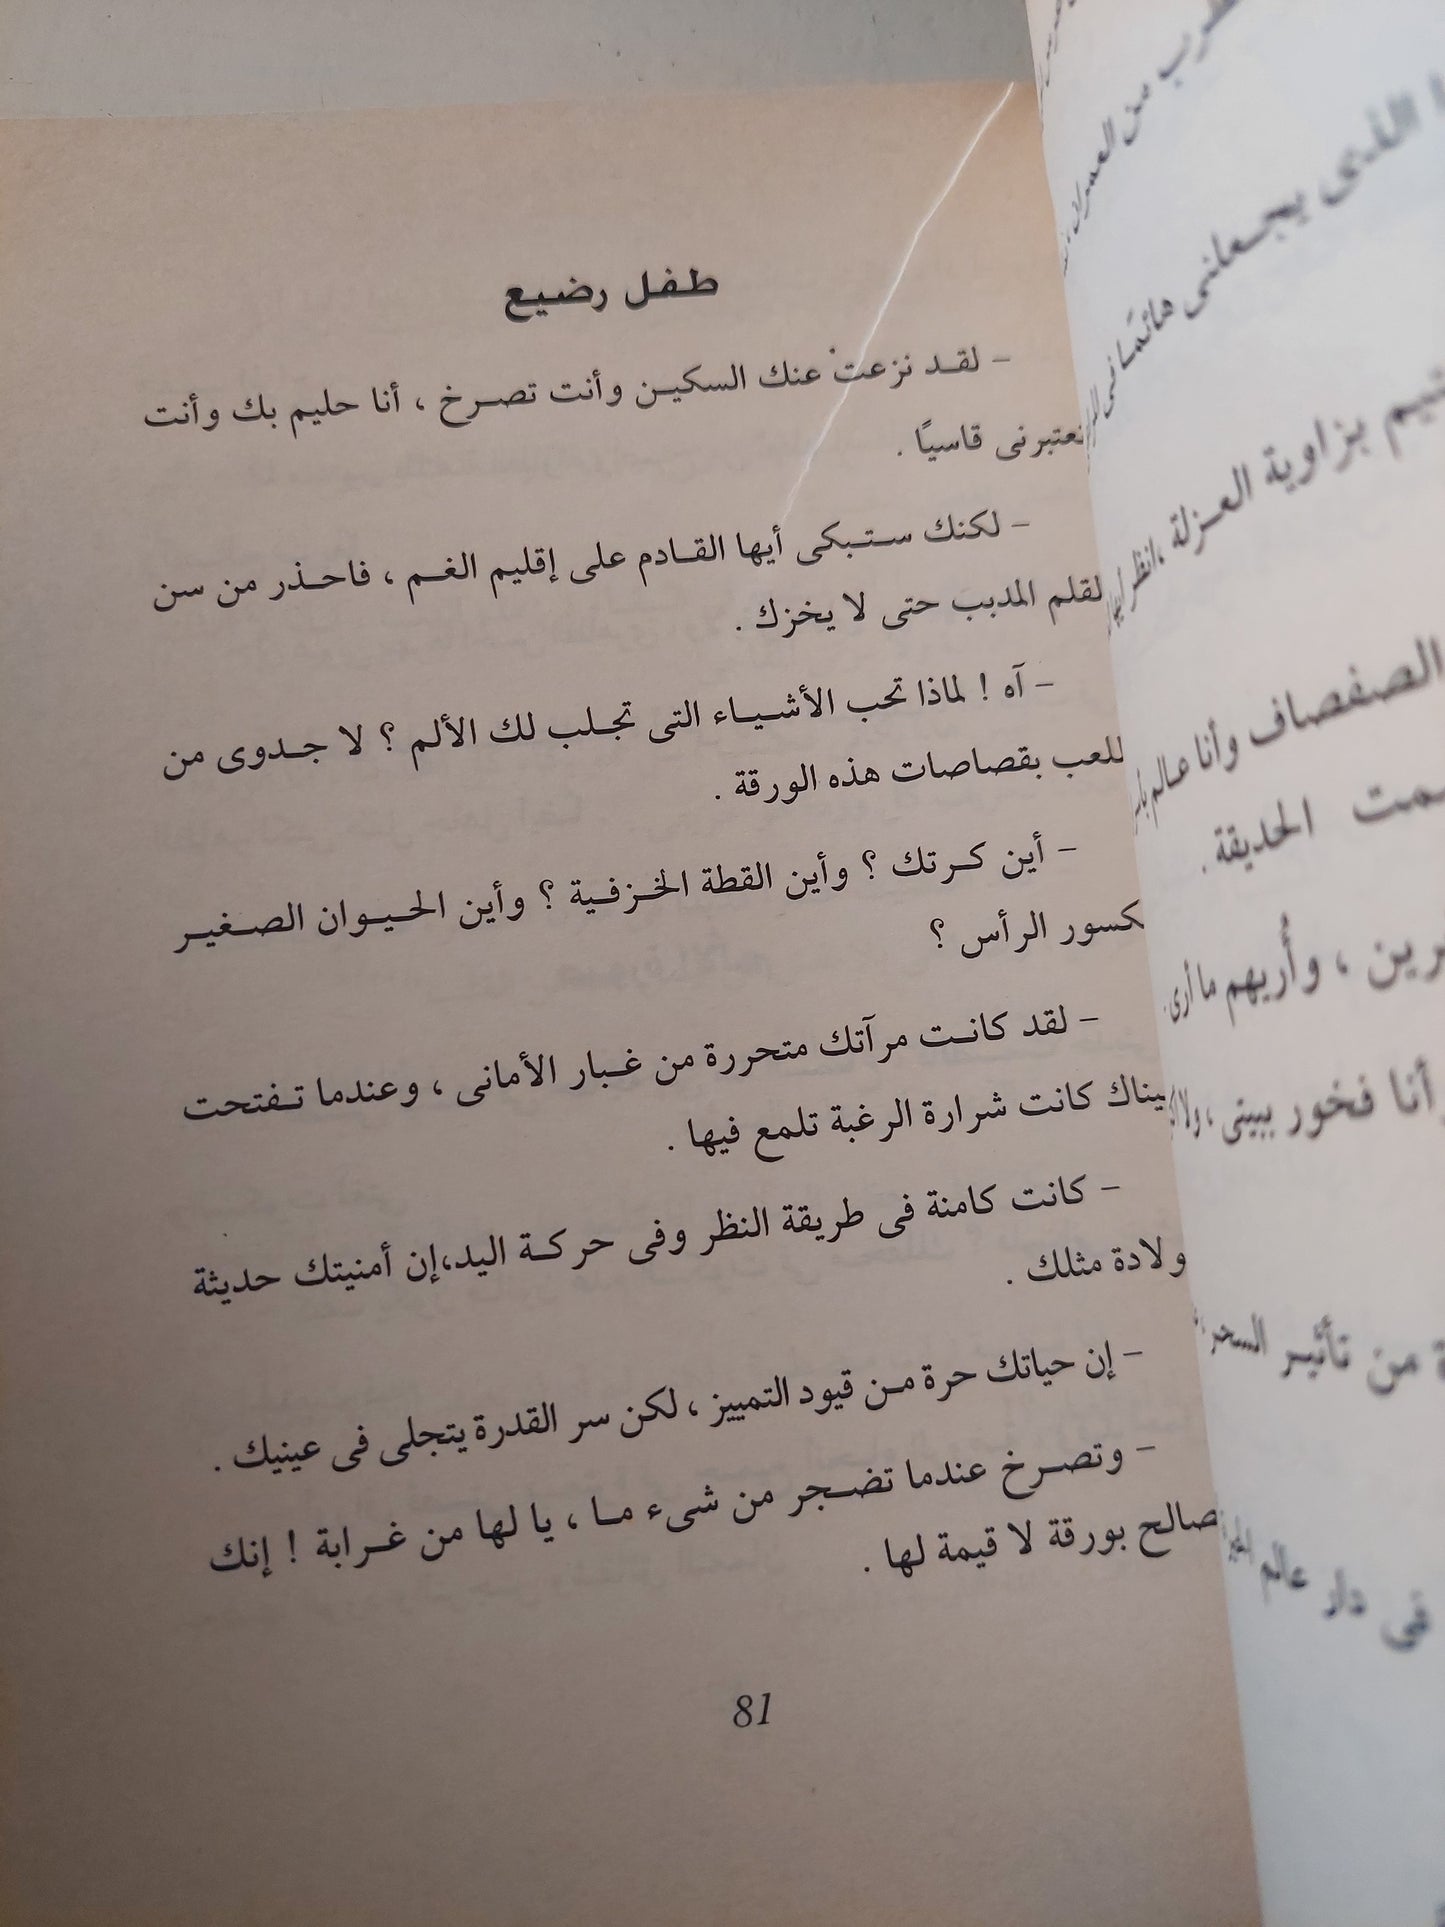 طفل رضيع
- لقد نزعت عنك السكين وأنت تصرخ ، أنا حليم بك وأنت
تعتبرنى قاسيًا .
- لكنك ستبكى أيها القادم على إقليم الغم ، فاحذر من سن
لقلم المدبب حتى لا يخزك .
- آه ! لماذا تحب الأشياء التى تجلب لك الألم ؟ لا جدوى من
للعب بقصاصات هذه الورقة .
- أين كرتك ؟ وأين القطة الخزفية ؟ وأين الحيوان الصغير
كسور الرأس ؟
- لقد كانت مرآتك متحررة من غبار الأمانى ، وعندما تفتحت
يناك كانت شرارة الرغبة تلمع فيها .
- كانت كامنة فى طريقة النظر وفى حركة اليد،إن أمنيتك حديثة
ولادة مثلك .
- إن حياتك حرة من قيود التمييز ، لكن سر القدرة يتجلى فى عينيك .
- وتصرخ عندما تضجر من شىء ما ، يا لها من غرابة ! إنك
صالح بورقة لا قيمة لها .
81
من العمران
الذى يجعلنى هائمًا فى
بزاوية العزلة ،انظر
الصفصاف وأنا عالم
الحديقة .
، وأُريهم ما أرى .
أنا فخور ببيتى ،
من تأثير السحر
فى دار عالم